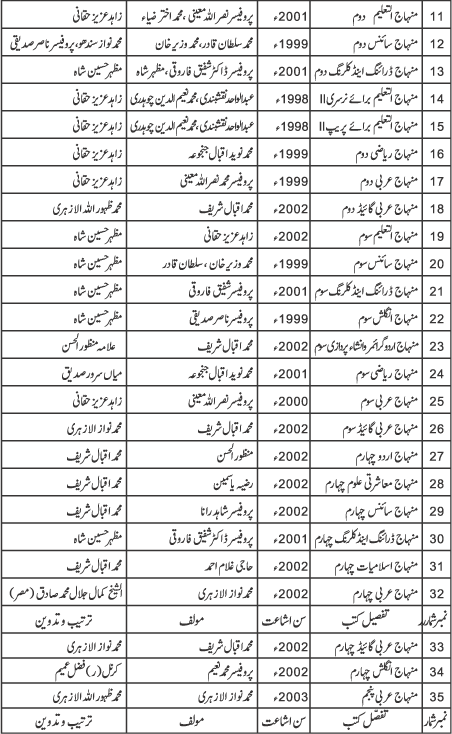 11 منہاج التعلیم دوم 2001ء پروفیسر نصر اللہ معینی، محمد اختر ضیاء زاہد عزیز حقانی
12 منہاج سائنس دوم 1999ء محمد سلطان قادر، محمد وزیر خان محمد نواز سندھو، پروفیسر ناصر صدیقی
13 منہاج ڈرائنگ اینڈ کلرنگ دوم 2001ء پروفیسر ڈاکٹر شفیق فاروقی، مظہر شاہ مظہر حسین شاہ
14 منہاج التعلیم برائے نرسری II 1998ء عبدالواحد نقشبندی، محمد نعیم الدین چوہدری زاہد عزیز حقانی
15 منہاج التعلیم برائے پریپ II 1998ء عبدالواحد نقشبندی، محمد نعیم الدین چوہدری زاہد عزیز حقانی
16 منہاج ریاضی دوم 1999ء محمد نوید اقبال جنجوعہ زاہد عزیز حقانی
17 منہاج عربی دوم 1999ء پروفیسر محمد نصر اللہ معینی زاہد عزیز حقانی
18 منہاج عربی گائیڈ دوم 2002ء محمد اقبال شریف محمد ظہور اللہ الازہری
19 منہاج التعلیم سوم 2002ء زاہد عزیز حقانی مظہر حسین شاہ
20 منہاج سائنس سوم 1999ء محمد وزیر خان، سلطان قادر مظہر حسین شاہ
21 منہاج ڈرائنگ اینڈ کلرنگ سوم 2001ء پروفیسر شفیق فاروقی مظہر حسین شاہ
22 منہاج انگلش سوم 1999ء پروفیسر ناصر صدیقی مظہر حسین شاہ
23 منہاج اردو گرائمر و انشاء پردازی سوم 2002ء محمد اقبال شریف علامہ منظور الحسن
24 منہاج ریاضی سوم 2001ء محمد نوید اقبال جنجوعہ میاں سرور صدیق
25 منہاج عربی سوم 2000ء پروفیسر نصر اللہ معینی زاہد عزیز حقانی
26 منہاج عربی گائیڈ سوم 2002ء محمد اقبال شریف محمد نواز الازہری
27 منہاج اردو چہارم 2002ء منظور الحسن محمد اقبال شریف
28 منہاج معاشرتی علوم چہارم 2002ء رضیہ یاسمین محمد اقبال شریف
29 منہاج سائنس چہارم 2002ء پروفیسر شاہد رانا محمد اقبال شریف
30 منہاج ڈرائنگ اینڈ کلرنگ چہارم 2001ء پروفیسر ڈاکٹر شفیق فاروقی مظہر حسین شاہ
31 منہاج اسلامیات چہارم 2002ء حاجی غلام احمد محمد اقبال شریف
32 منہاج عربی چہارم 2002ء محمد نواز الازہری الشیخ کمال جلال محمد صادق (مصر)
نمبر شمار تفصیل کتب سن اشاعت مولف ترتیب و تدوین
33 منہاج عربی گائیڈ چہارم 2002ء محمد اقبال شریف محمد نواز الازہری
34 منہاج انگلش چہارم 2002ء پروفیسر محمد نعیم کرنل (ر) فضل عمیم
35 منہاج عربی پنجم 2003ء محمد نواز الازہری محمد ظہور اللہ الازہری
نمبر شمار تفصیل کتب سن اشاعت مولف ترتیب و تدوین